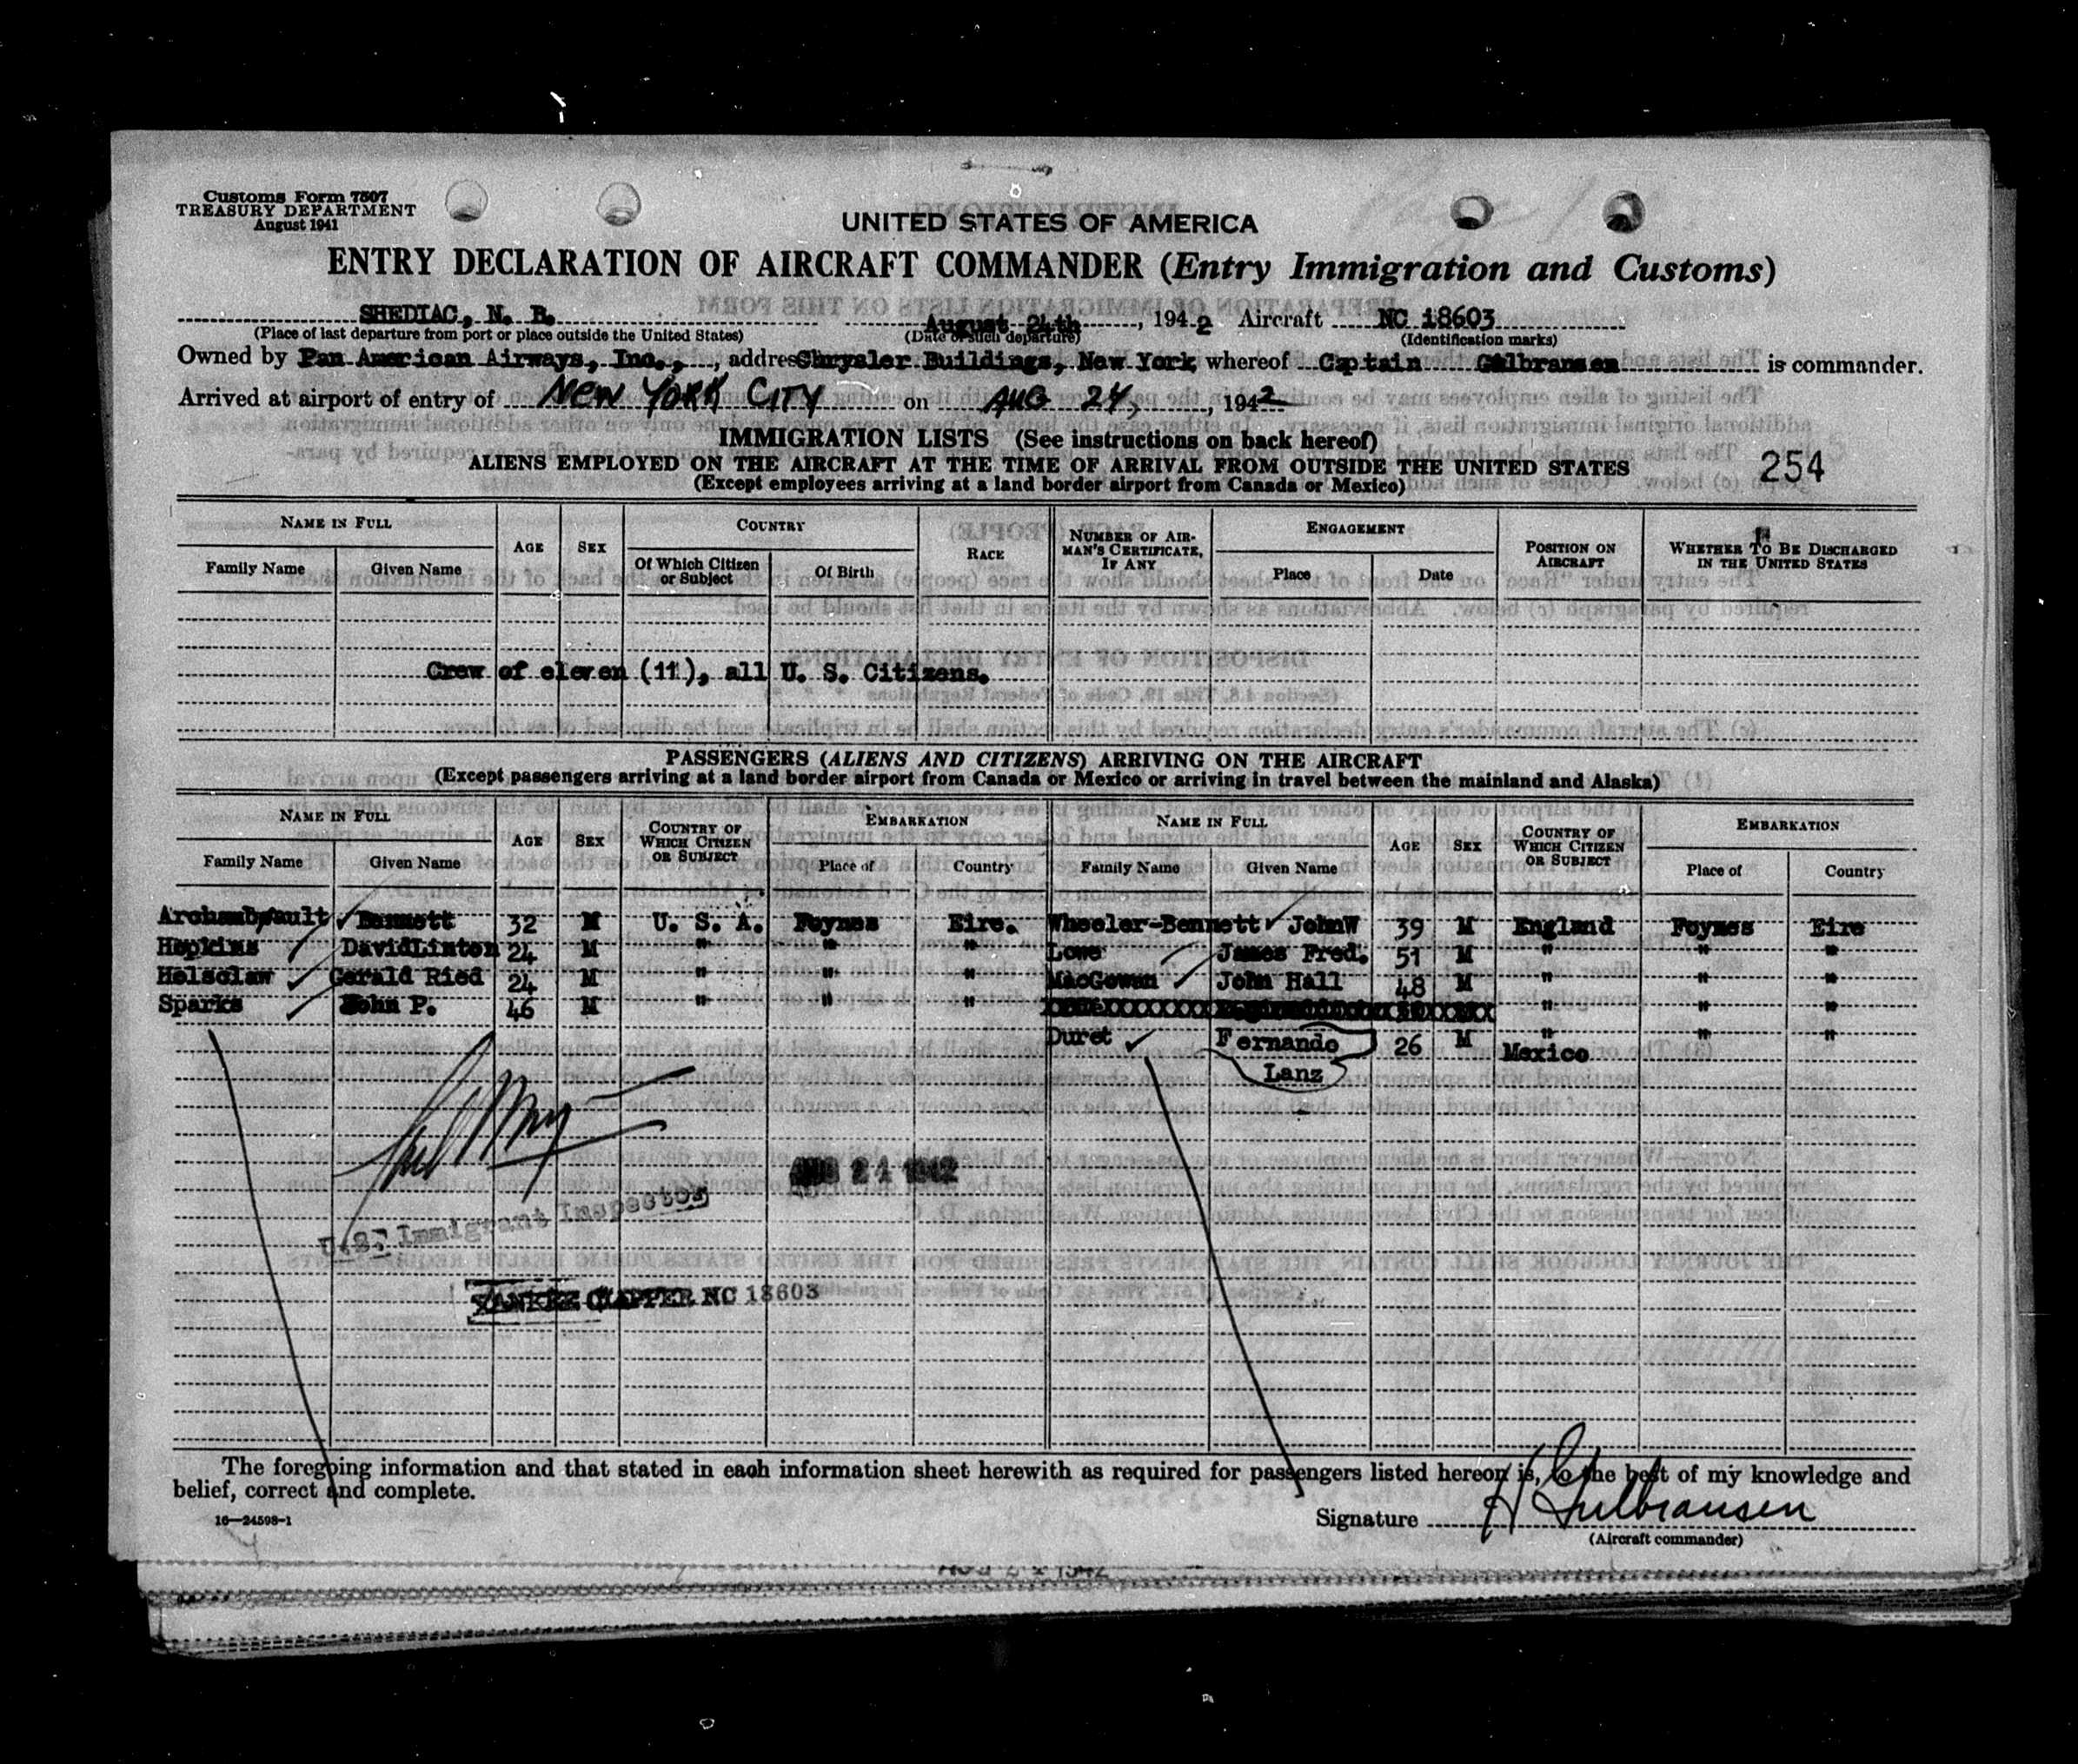 Customs Form 7507
TREASURY DEPARTMENT
August 1941
UNITED STATES OF AMERICA
ENTRY DECLARATION OF AIRCRAFT COMMANDER (Entry Immigration and Customs)
SHEDIAC, N. B. August 24th, 1942 Aircraft NC 18603
(Place of last departure from port or place outside the United States) (Date of such departure) (Identification marks)
Owned by Pan American Airways, Inc., address Chrysler Buildings, New York whereof Captain Gulbransen is commander.
Arrived at airport of entry of NEW YORK CITY on AUG 24, 1942
IMMIGRATION LISTS (See instructions on back hereof)
ALIENS EMPLOYED ON THE AIRCRAFT AT THE TIME OF ARRIVAL FROM OUTSIDE THE UNITED STATES
254
(Except employees arriving at a land border airport from Canada or Mexico)
NAME IN FULL AGE SEX COUNTRY RACE NUMBER OF AIRMAN'S CERTIFICATE, IF ANY ENGAGEMENT POSITION ON AIRCRAFT WHETHER TO BE DISCHARGED IN THE UNITED STATES
Family Name Given Name Of Which Citizen or Subject Of Birth Place Date
Crew of eleven (11), all U. S. Citizens.
PASSENGERS (ALIENS AND CITIZENS) ARRIVING ON THE AIRCRAFT
(Except passengers arriving at a land border airport from Canada or Mexico or arriving in travel between the mainland and Alaska)
NAME IN FULL AGE SEX COUNTRY OF WHICH CITIZEN OR SUBJECT EMBARKATION NAME IN FULL AGE SEX COUNTRY OF WHICH CITIZEN OR SUBJECT EMBARKATION
Family Name Given Name Place of Country Family Name Given Name Place of Country
Archambault Bennett 32 M U. S. A. Foynes Eire. Wheeler-Bennett JohnW 39 M England Foynes Eire
Hopkins DavidLinton 24 M " " " Lowe James Fred. 51 M " " "
Helsclaw Gerald Ried 24 M " " " MacGowan John Hall 48 M " " "
Sparks John P. 46 M " " " " " "
Duret Fernando 26 M " " "
Mexico
Lanz
AUG 24 1942
U.S. Immigrant Inspector
YANKEE CLIPPER NC 18603
The foregoing information and that stated in each information sheet herewith as required for passengers listed hereon is, to the best of my knowledge and
belief, correct and complete.
Signature H Gulbransen
16—24598-1
(Aircraft commander)